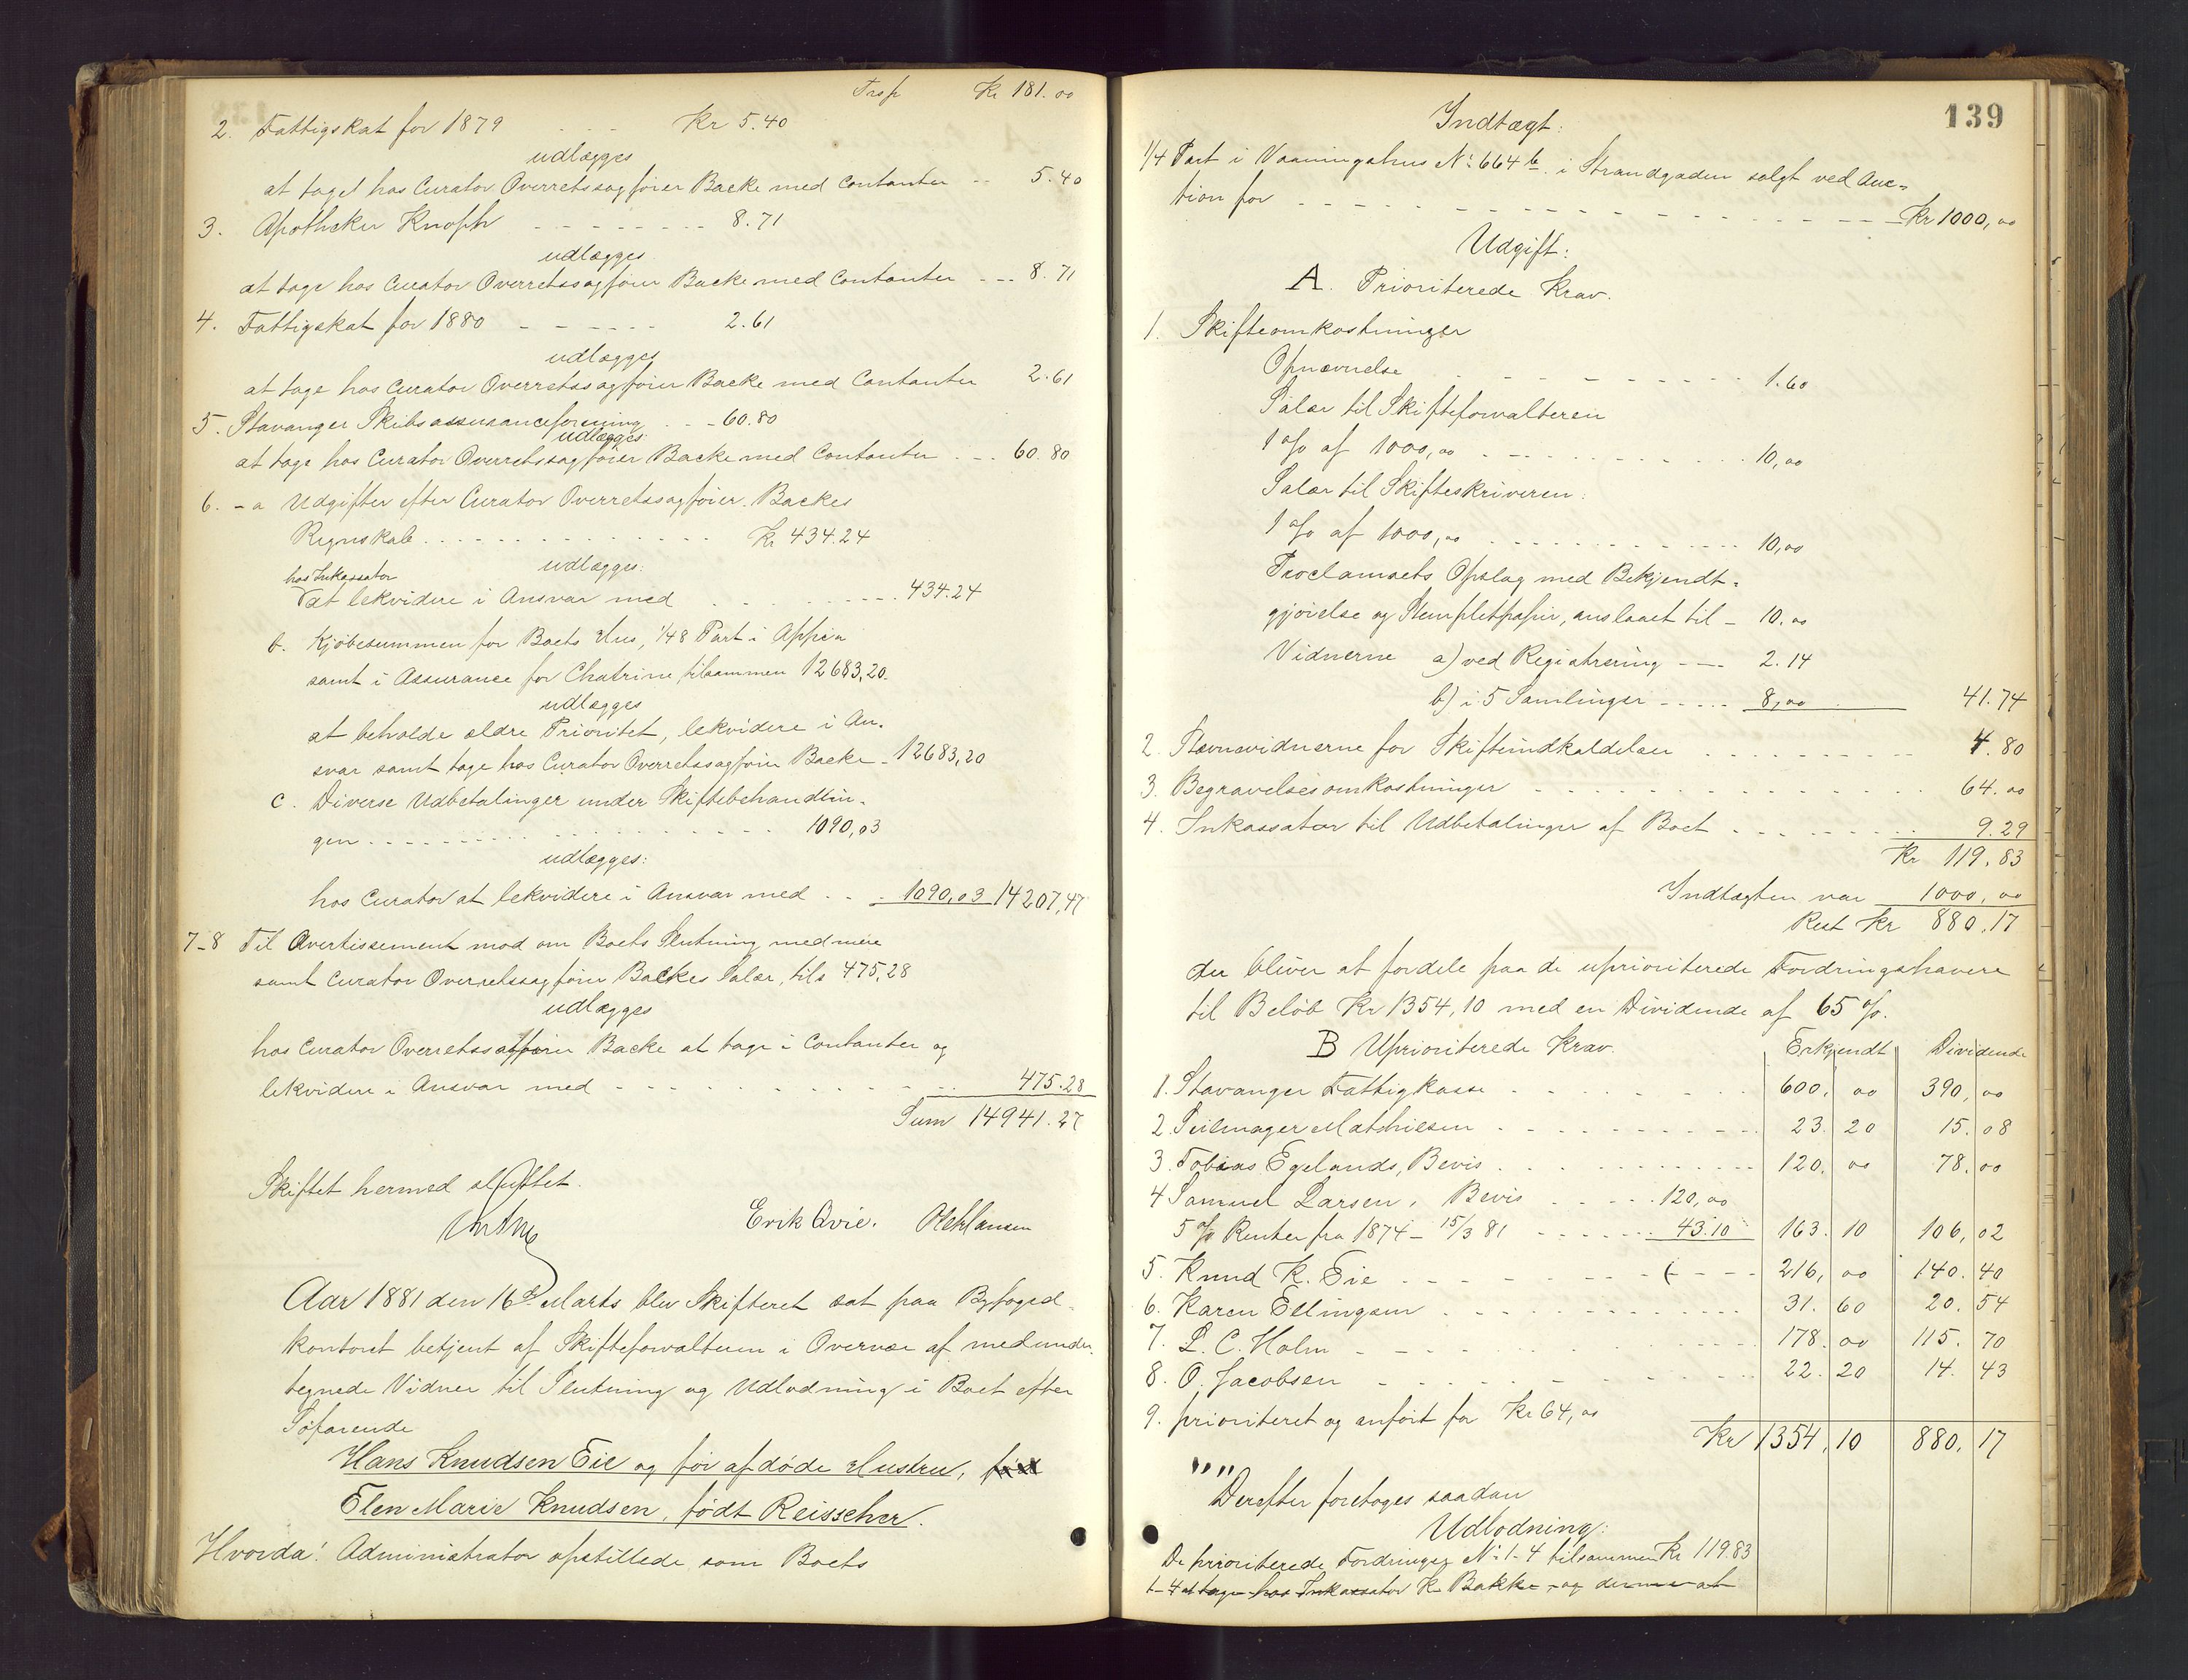 Trsp Kr 181.00
2. Fattigskat for 1879 - - - Kr 5.40
udlægges
at taget hos Curator Overretssagfører Backe med Contanter - - 5.40
3. Apotheker Knoph - - - - - - - - 8.71
udlægges
at tage hos Curator Overretssagfører Backe med Contanter - - - 8.71
4. Fattigskat for 1880 - - - - - - 2.61
udlægges
at tage hos Curator Overretssagfører Backe med Contanter 2.61
5. Stavanger Skibsassuranceforening - - - 60.80
udlægges
at tage hos Curator Overretssagfører Backe med Contanter - - - 60.80
6. - a Udgifter efter Curator Overretssagfører Backes
Regnskab . . . . . . . . . . . . . . Kr 434.24
udlægges:
hos Inkassator
at lekvidere i Ansvar med . . . . . . . . . 434.24
b. Kjøbesummen for Boets Hus, 1/48 Part i Appia
samt i Assurance for Chatrine, tilsammen 12683,20.
udlægges
at beholde ældre Prioritet, lekvidere i An-
svar samt tage hos Curator Overretssagfører Backe - 12683,20
c. Diverse Udbetalinger under Skiftebehandlin-
gen . . . . . . . . . . . . . . . . 1090,03
udlægges:
hos Curator at lekvidere i Ansvar med . . . 1090,03 14207,47
7-8 Til Avertissement mod om Boets Slutning med mere
samt Curator Overretssagfører Backes Salær, tils 475,28
udlægges
hos Curator Overretssagfører Backe at tage i Contanter og
lekvidere i Ansvar med - - - - - - - - - - - - 475.28
Sum 14941.27
Skiftet hermed sluttet.
Erik Qvie. Ole Hansen
Aar 1881 den 16de Marts blev Skifteret sat paa Byfoged-
kontoret betjent af Skifteforvalteren i Overvær af medunder-
tegnede Vidner til Slutning og Udlodning i Boet efter
Søfarende
Hans Knudsen Eie og før afdøde Hustru, født
Elen Marie Knudsen, født Reisscher.
Hvorda! Administrator opstillede som Boets
139
Indtægt:
1/4 Part i Vaaningshus No 664 b. i Strandgaden solgt ved Auc-
tion for - - - - - - - - - - - - - - - - Kr 1000,00
Udgift:
A. Prioriterede Krav.
1. Skifteomkostninger
Opnævnelse - - - - - - - - - - 1.60
Salær til Skifteforvalteren
1 % af 1000,00 - - - - - - - - - - 10,00
Salær til Skifteskriveren:
1 % af 1000,00 - - - - - - - - - - 10,00
Proclamaets Opslag med Bekjendt-
gjørelse og Stempletpapir, anslaaet til - 10.00
Vidnerne a) ved Registrering - - - 2.14
b) i 5 Samlinger - - - - - 8,00 41.74
2. Stævnevidnerne for Skifteindkaldelsen - - - - - - - - - 4.80
3. Begravelsesomkostninger - - - - - - - - - - - - - 64.00
4. Inkassator til Udbetalinger af Boet - - - - - - - - 9.29
Kr 119.83
Indtægten var 1000,00
Rest Kr 880.17
der bliver at fordele paa de uprioriterede Fordringshavere
til Beløb Kr 1354,10 med en Dividende af 65 %.
B Uprioriterede Krav. Erkjendt Dividende
1. Stavanger Fattigkasse - - - - - - - - 600.00 390,00
2. Seilmager Mathiesen - - - - - - - - - - 23.20 15.08
3. Tobias Egelands, Bevis - - - - - - - - - 120.00 78.00
4 Samuel Larsen, Bevis - - - - - 120,00
5 % Renter fra 1874 - 15/3 81 - - - - - - 43.10 163.10 106,02
5. Knud K. Eie - - - - - - - - - - - - - 216,00 140.40
6. Karen Ellingsen - - - - - - - - - - - - 31.60 20.54
7. L. C. Holm - - - - - - - - - - - - 178.00 115.70
8. O. Jacobsen - - - - - - - - - - - - 22.20 14.43
9. prioriteret og anført for Kr 64,00
Kr 1354,10 880,17
""
Derefter foretoges saadan
Udlodning:
De prioriterede Fordringer No 1-4 tilsammen Kr 119.83
1-4 at tage hos Inkassator K. Bakke - og at